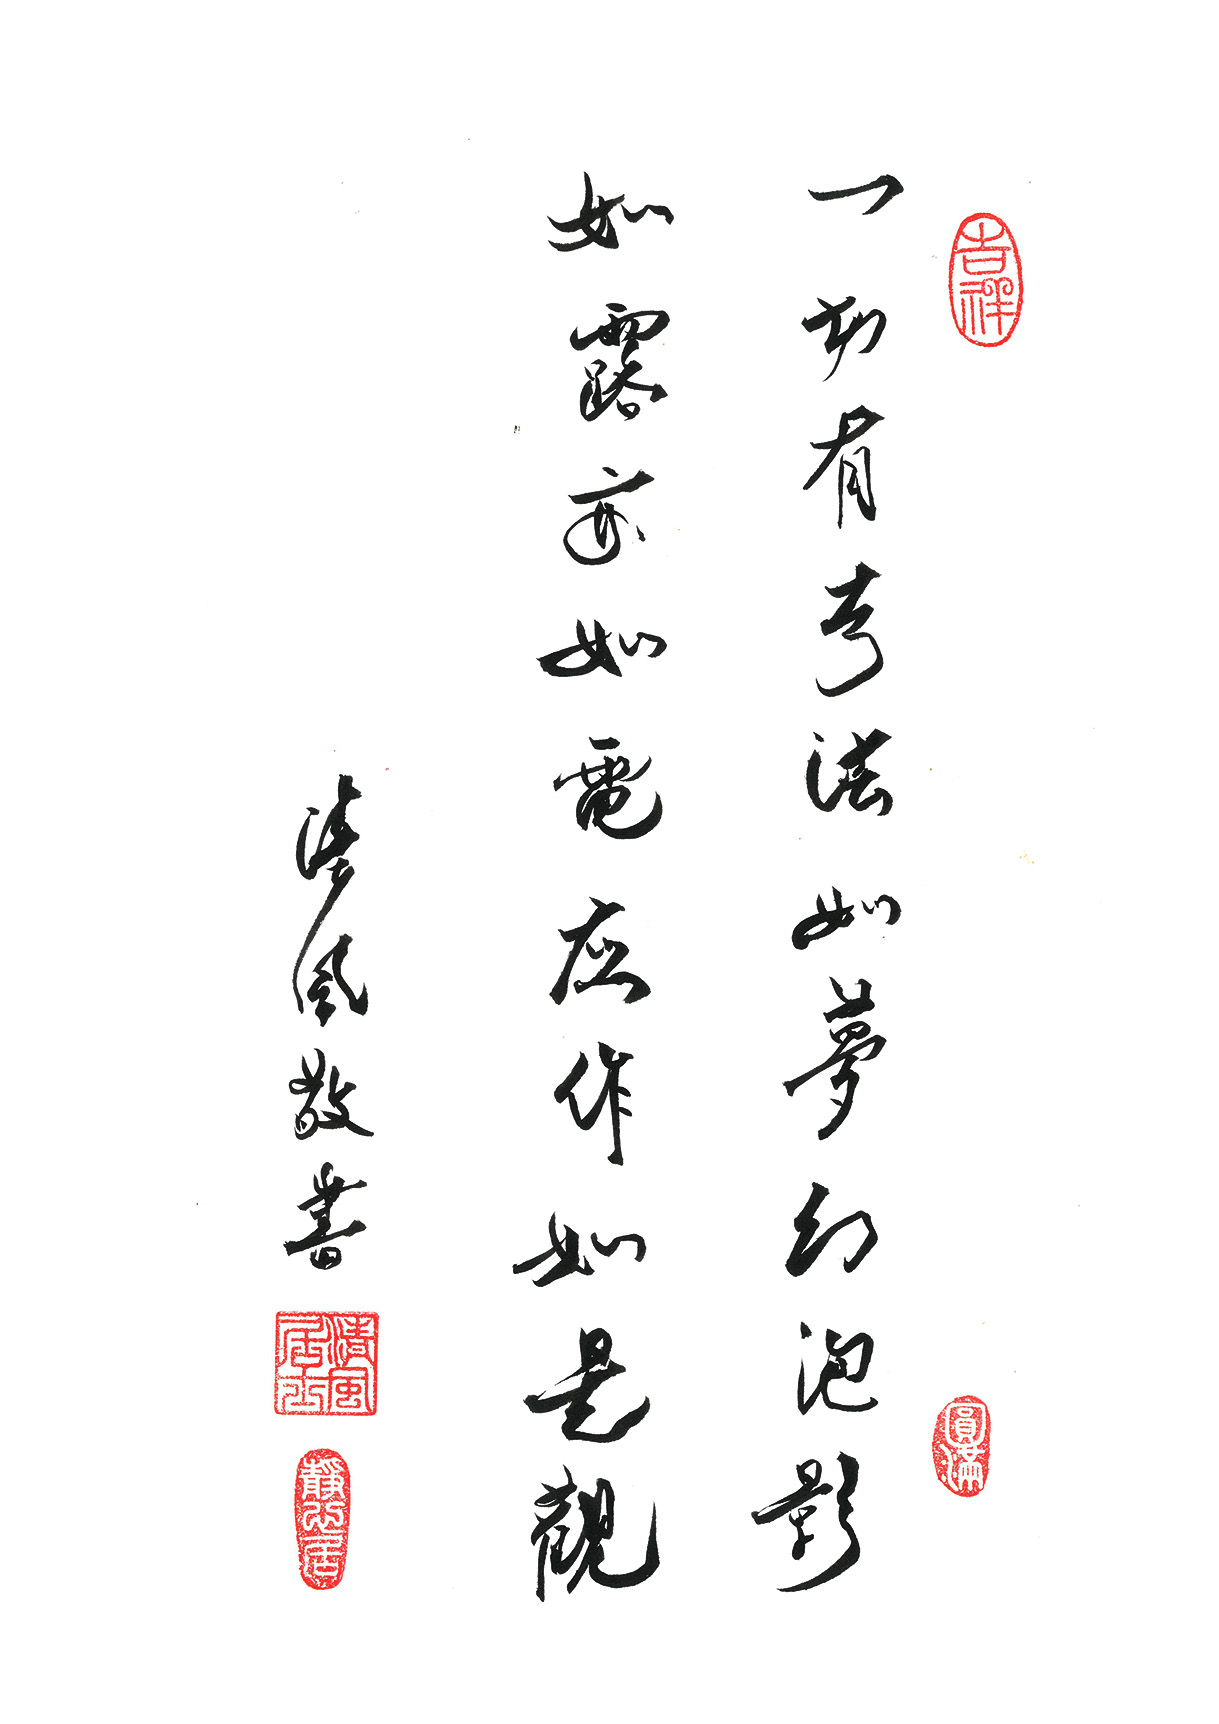 吉祥
一切有為法如夢幻泡影
圓滿
如露亦如電應作如是觀
清風敬書
清風居士
靜心居